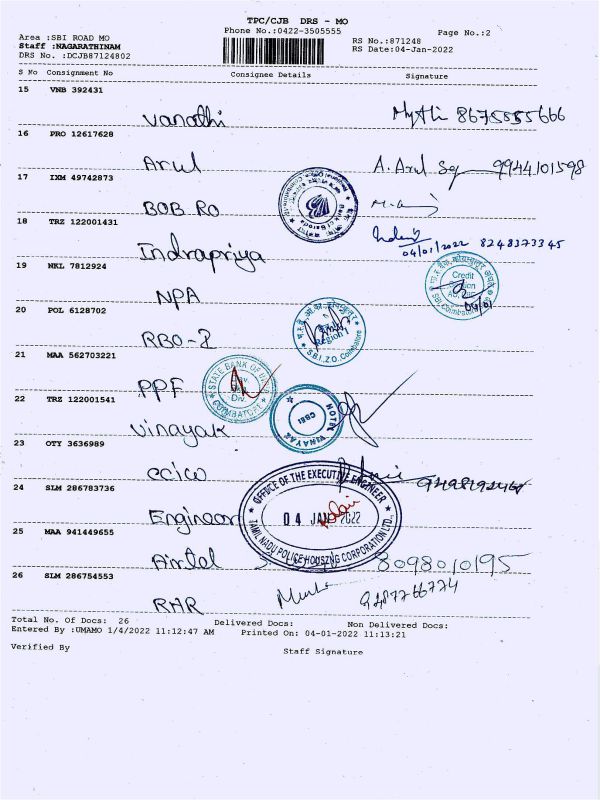 TPC/CJB DRS - MO
Phone No.:0422-3505555
Page No.:2
Area :SBI ROAD MO
Staff :NAGARATHINAM
DRS No. :DCJB87124802
RS No.:871248
RS Date:04-Jan-2022
S No Consignment No Consignee Details Signature
15 VNB 392431
Vanathi 8675555666
16 PRO 12617628
Arul A. Arul 9944101598
17 IXM 49742873
BOB RO
Bank of Baroda
18 TRZ 122001431
Indrapriya 04/01/2022 8248373345
19 NKL 7812924
NPA
Credit
04/01
20 POL 6128702
RBO-2
Region
S.B.I, Z.O, Coimbatore
21 MAA 562703221
PPF
STATE BANK OF
Div.
COIMBATORE
22 TRZ 122001541
Vinayak
HOTEL VINAYAK
CBE
23 OTY 3636989
24 SLM 286783736
Engineer
OFFICE OF THE EXECUTIVE ENGINEER
04 JAN 2022
TAMIL NADU POLICE HOUSING CORPORATION LTD.
25 MAA 941449655
Airtel 8098010195
26 SLM 286754553
RHR 9487766774
Total No. Of Docs: 26 Delivered Docs: Non Delivered Docs:
Entered By :UMAMO 1/4/2022 11:12:47 AM Printed On: 04-01-2022 11:13:21
Verified By Staff Signature